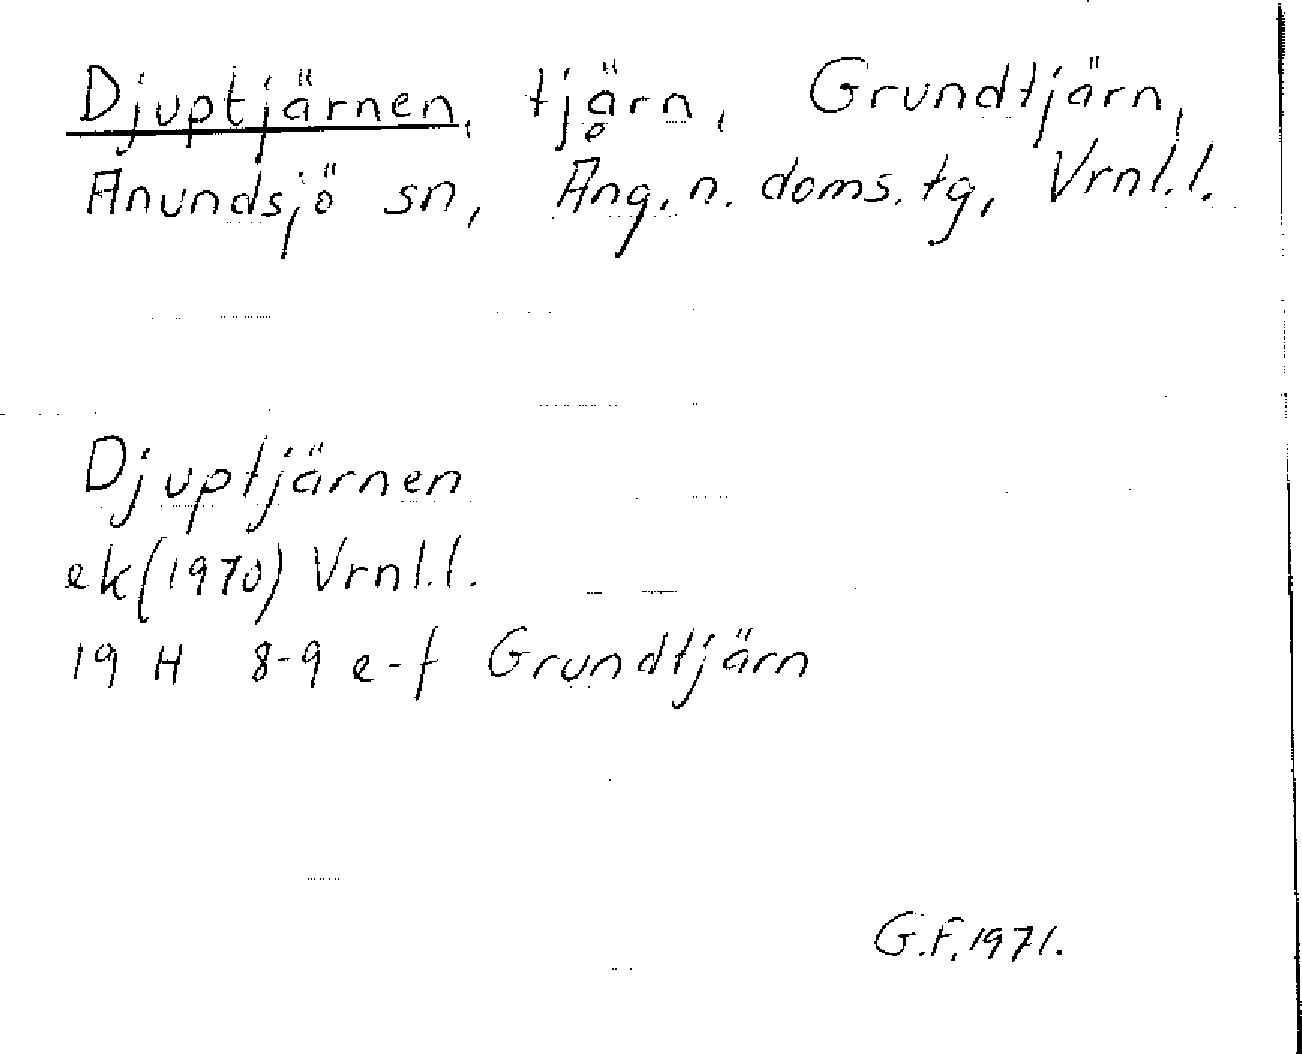 Djuptjärnen, tjärn, Grundtjärn,
Anundsjö sn, Ång. n. doms. tg, Vrml. l.
Djuptjärnen
ek (1970) Vrnl. l.
19 H 8-9 e-f Grundtjärn
G.F. 1971.